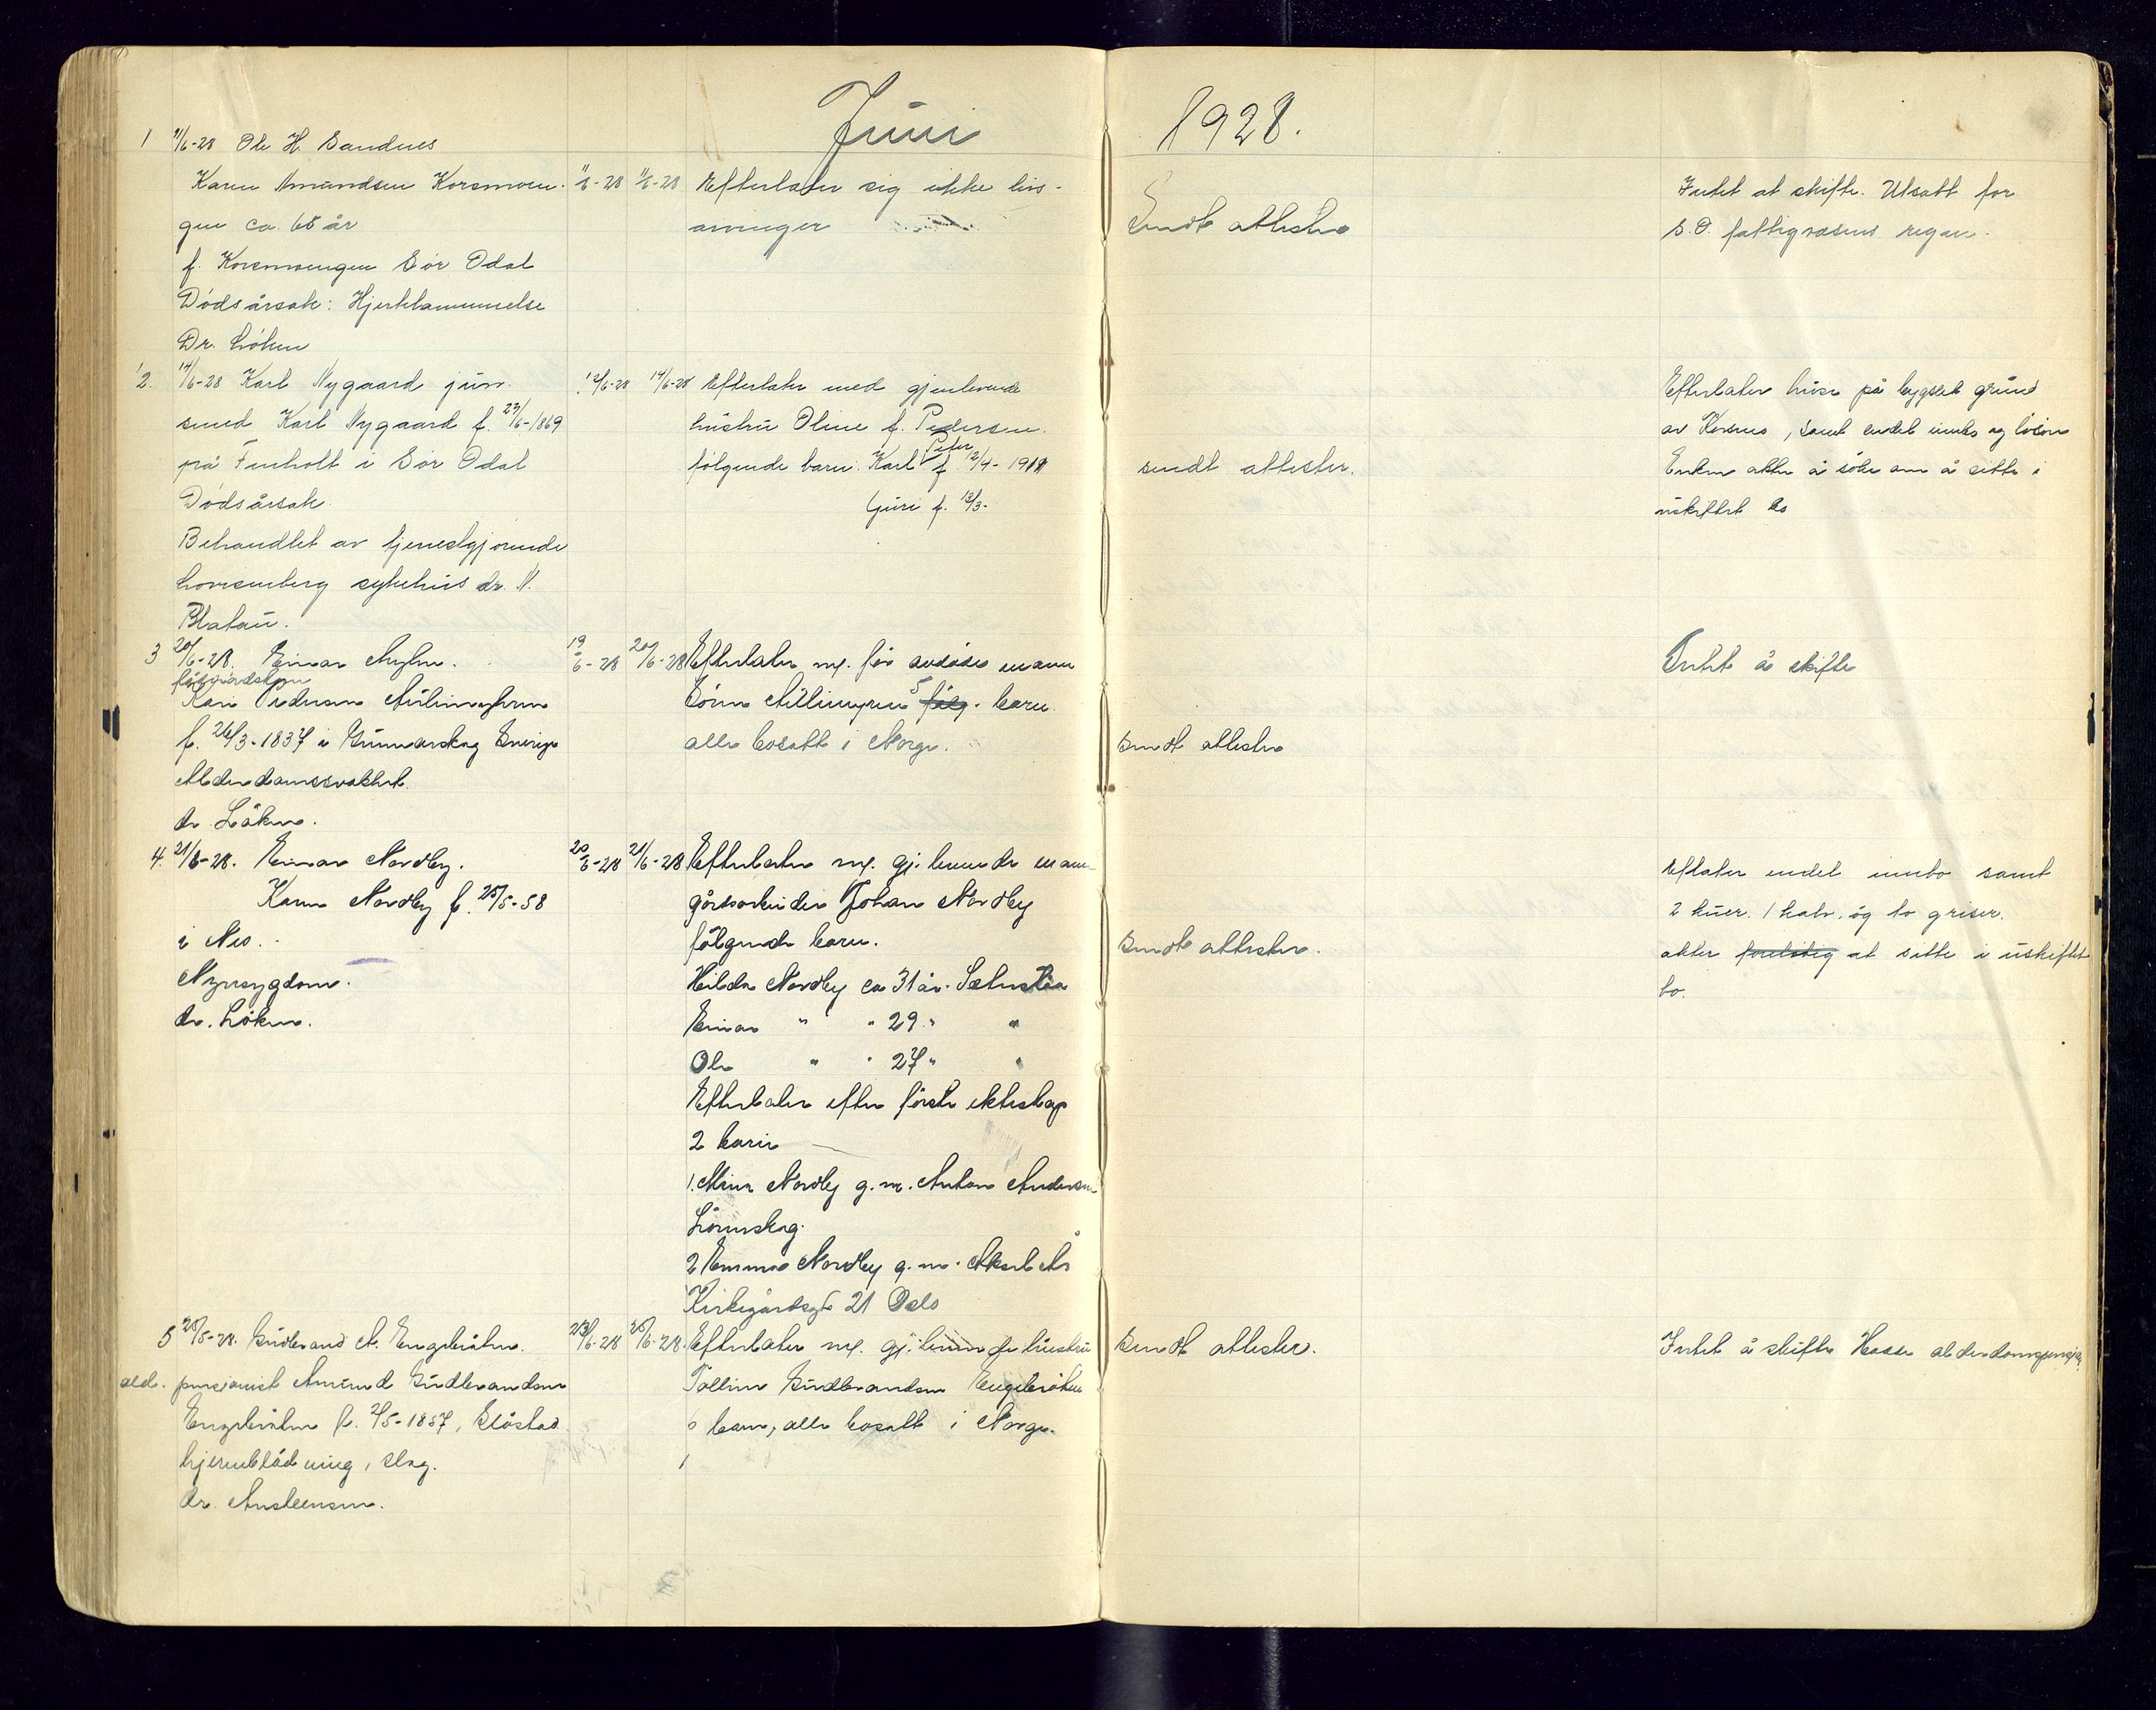 Juni 1928.
1 11/6-28 Ole H. Sandnes
Karen Amundsen Korsmoen- 11/6-28 11/6-28 Efterlater sig ikke livs- Intet at skifte. Utsatt for
gen ca. 65 år arvinger Sendt attester S.O. fattigvæsens regn.
f. Korsmoengen Sør Odal
Dødsårsak: Hjertelammelse
Dr. Løken
2. 14/6-28 Karl Nygaard jun. 12/6-28 14/6-28 Efterlater med gjenlevende Efterlater huse på bygslet grund
smed Karl Nygaard f. 23/6-1869 hustru Oline f. Pedersen. av Korsmo, samt endel innbo og løsøre
på Fuholt i Sør Odal følgende barn: Karl Peter f 12/4-1911 sendt attester. Enken akter å søke om å sitte i
Dødsårsak. Guri f. 13/3- uskiftet bo
Behandlet av tjenestgjørende
Lovisenberg sykehus dr. N.
Blatau.
3 20/6-28. Einar Myhre. 19/6-28 20/6-28 Efterlater m. før avdøde mann Intet å skifte
Kari Pedersen
f. 26/3-1837 i Gunnarskog Sverige alle bosatt i Norge. Sendt attester
Alderdomssvakhet.
dr. Løken.
4. 21/6-28. Einar Nordby. 20/6-28 21/6-28 Efterlater m. gj. levende mann Eflater endel innbo samt
Karen Nordby f. 25/5-58 gårdsarbeider Johan Nordby 2 kuer. 1 kalv. og to griser.
i Nes. følgende barn. Sendt attester. akter at sitte i uskiftet
Nyresygdom. Hilda Nordby ca 31 år. bo.
dr. Løken. Einar " " 29 " "
Ole " " 27 " "
Efterlater efter første ekteskap
2 barn
1. Mina Nordby g.m. Anton Andersen
Lørenskog.
2 Emma Nordby g.m. Aksel Ås
Kirkegårdsgt 21 Oslo
5 25/5-28. Gudbrand A. Engebråten. 23/6-28 25/6-28. Efterlater m. gj. levende hustru Sendt attester. Intet å skifte Hadde alderdomspensjon
ald. pensjonist Amund Gudbrandsen Gudbrandsen Engebråten
Engebråten f. 2/5-1857, 6 barn, alle bosatt i Norge.
hjerneblødning, slag.
dr. Austeensen.